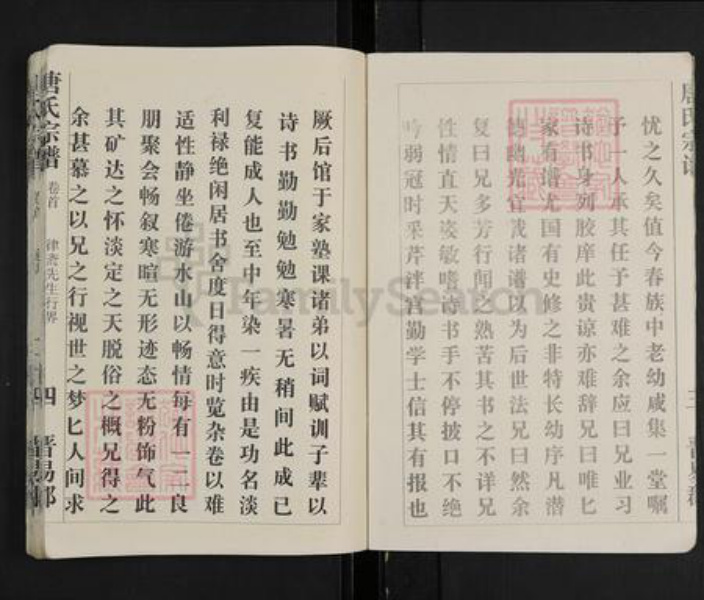 唐氏宗谱
三
晋易郡
忧之久矣值今春族中老幼咸集一堂嘱
予一人承其任予甚难之余应曰兄业习
诗书身列胶庠此贵谅亦难辞兄曰唯匕
家有谱尤国有史修之非特长幼序凡潜
德幽光宜載诸谱以为后世法兄曰然余
复曰兄多芳行闻之熟苦其书之不详兄
性情直天姿敏嗜诗书手不停披口不绝
吟弱冠时采芹泮宫勤学士信其有报也
厥后馆于家塾课诸弟以词赋训子辈以
诗书勤勤勉勉寒暑无稍间此成已
复能成人也至中年染一疾由是功名淡
利禄绝闲居书舍度日得意时览杂卷以难
适性静坐倦游水山以畅情每有一二良
朋聚会畅叙寒暄无形迹态无粉饰气此
其矿达之怀淡定之天脱俗之概兄得之
余甚慕之以兄之行视世之梦匕人间求
唐氏宗谱
卷首
律斋先生行畧
四
晋易郡
FamilySearch